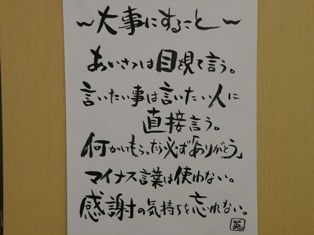 ～大事にすること～
あいさつは目を見て言う。
言いたい事は言いたい人に
直接言う。
何かしてもらったら必ず「ありがとう」
マイナス言葉は使わない。
感謝の気持ちを忘れない。